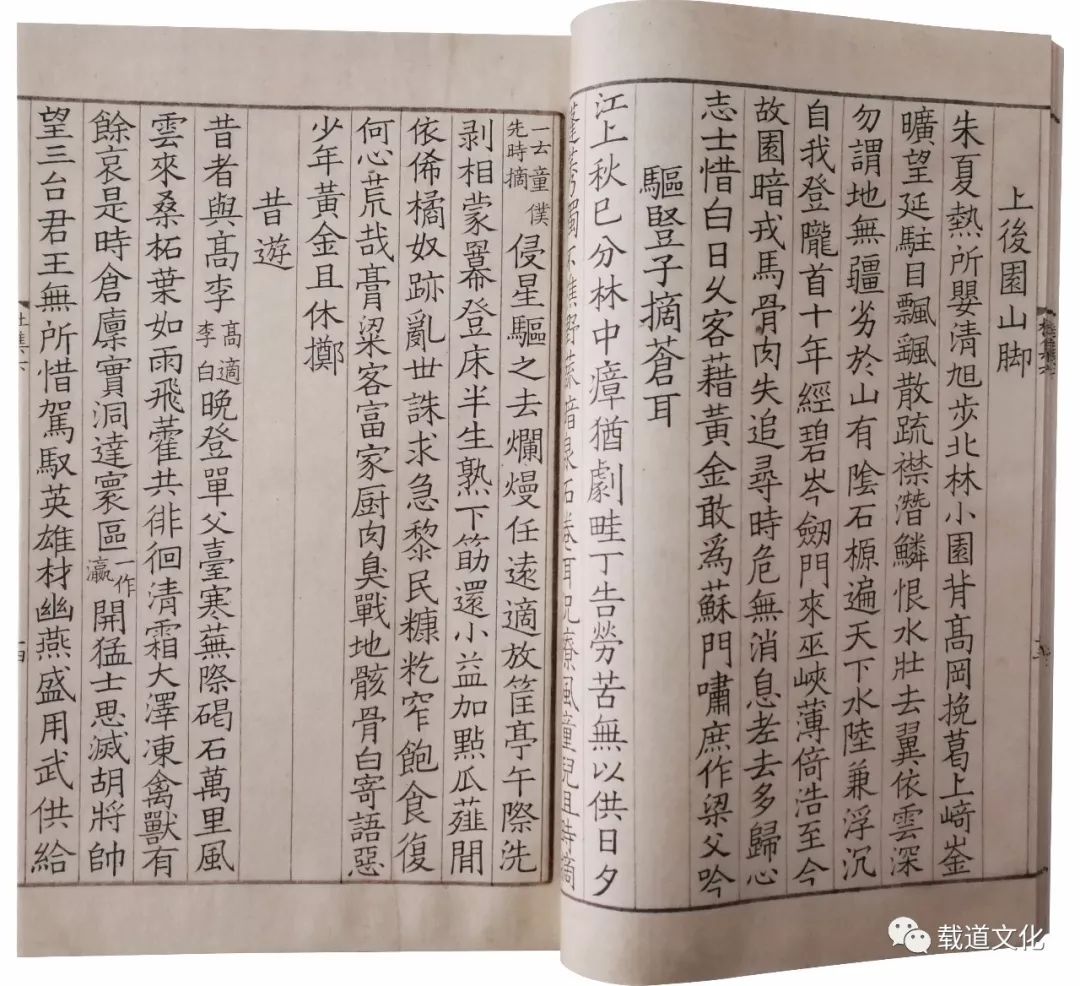 上後園山脚
朱夏熱所嬰清旭步北林小園背髙岡挽葛上﨑崟
曠望延駐目飄颻散疏襟潛鱗恨水壯去翼依雲深
勿謂地無疆劣於山有陰石榞遍天下水陸兼浮沉
自我登隴首十年經碧岑劒門來巫峽薄倚浩至今
故園暗戎馬骨肉失追尋時危無消息老去多歸心
志士惜白日久客藉黃金敢爲蘇門嘯庶作梁父吟
驅豎子摘蒼耳
江上秋已分林中瘴猶劇畦丁告勞苦無以供日夕
蓬莠獨不焦野蔬暗泉石卷耳况療風童兒且時摘
一云童僕先時摘侵星驅之去爛熳任遠適放筐亭午際洗
剥相蒙羃登床半生熟下筯還小益加點瓜薤間
依俙橘奴跡亂世誅求急黎民糠籺窄飽食復
何心荒哉膏粱客富家厨肉臭戰地骸骨白寄語惡
少年黃金且休擲
昔遊
昔者與髙李髙適李白晚登單父臺寒蕪際碣石萬里風
雲來桑柘葉如雨飛藿共徘徊清霜大澤凍禽獸有
餘哀是時倉廪實洞達寰區一作瀛開猛士思滅胡將帥
望三台君王無所惜駕馭英雄材幽燕盛用武供給
载道文化